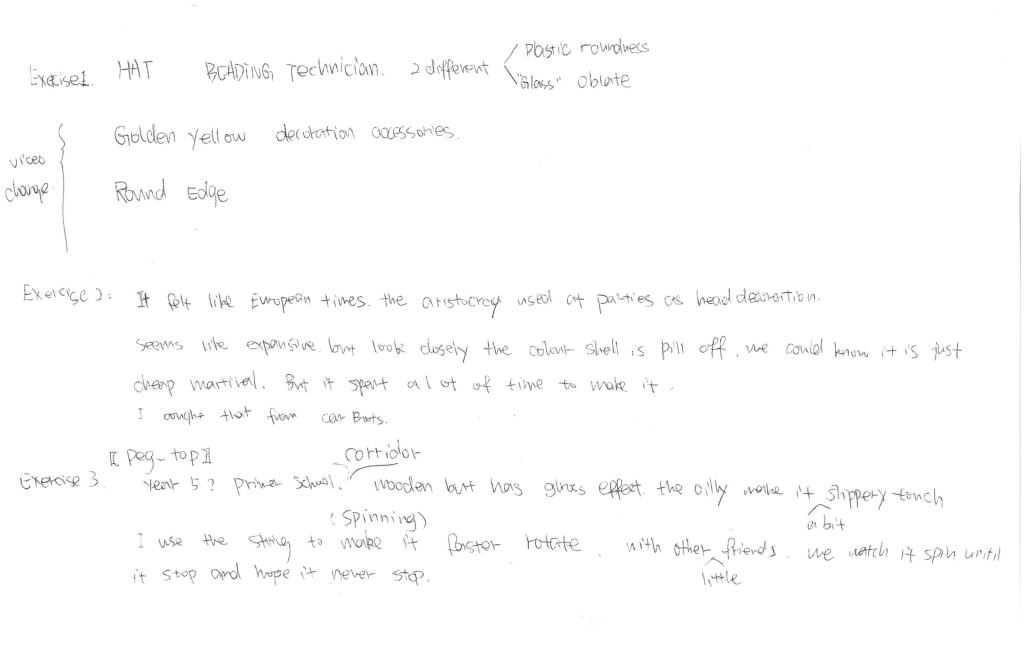 Plastic roundness
Exercise1. HAT BEADING Technician. 2 different
"Glass" oblate
Golden yellow decoration accessories.
video
change.
Round Edge
Exercise 2: It felt like European times. the aristocracy used at parties as head decoration.
seems like expansive. but look closely the colour shell is pill off, we could know it is just
cheap martiral. But it spent a lot of time to make it.
I bought that from car Boots.
[Peg-top] corridor
Exercise 3. Year 5? primer school. wooden but has glass effect. the oilly make it slippery touch
(spinning) a bit
I use the string to make it faster rotate. with other friends. we watch it spin until
it stop and hope it never stop. little